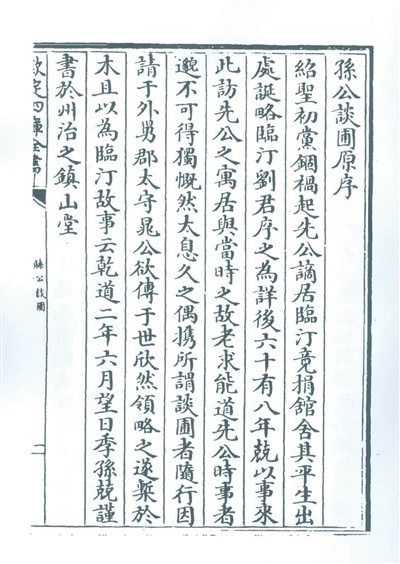 孫公談圃原序
紹聖初黨錮禍起先公謫居臨汀竟捐舘舍其平生出
處誕略臨汀劉君序之為詳後六十有八年兢以事來
此訪先公之寓居與當時之故老求能道先公時事者
邈不可得獨慨然大息久之偶攜所謂談圃者隨行因
請于外舅郡太守晁公欲傳于世欣然領略之遂槧於
木且以為臨汀故事云乾道二年六月望日季孫兢謹
書於州治之鎮山堂
欽定四庫全書
孫公談圃
二